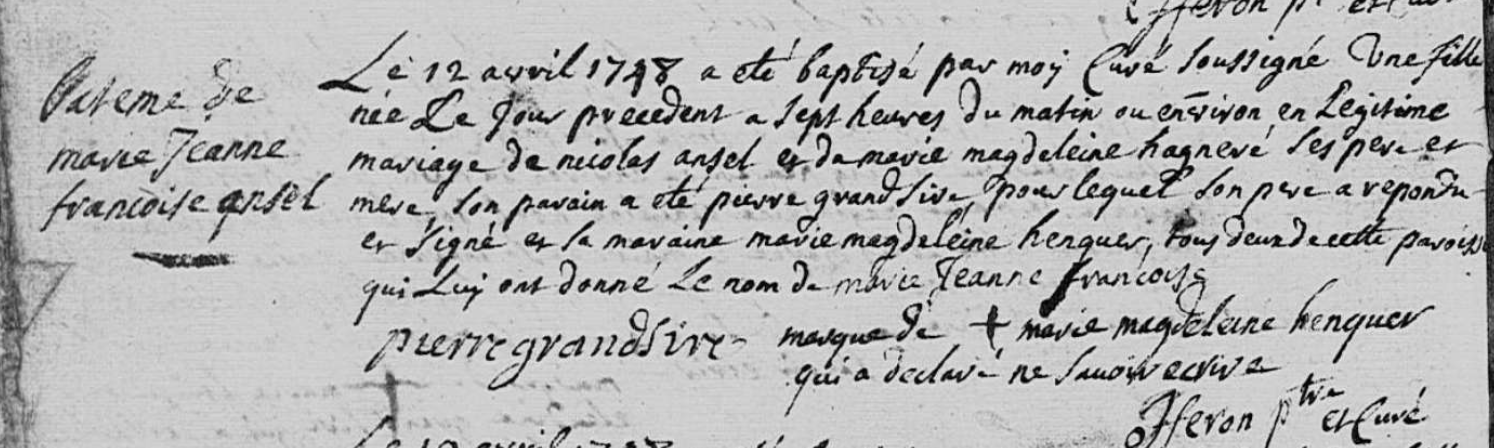 fferon p^t et Curé
Bateme de
marie Jeanne
francoise ansel
Le 12 avril 1748 a eté baptisé par moy Curé soussigné Une fille
née Le Jour precedent a sept heures du matin ou environ en Legitime
mariage de nicolas ansel et de marie magdeleine hagneré ses pere et
mere, son parain a eté pierre grandsire, pour lequel son pere a repondu
et signé et sa maraine marie magdeleine henguer, tous deux de cette paroisse
qui Luy ont donné Le nom de marie Jeanne francoise
pierre grandsire marque de + marie magdeleine henguer
qui a declaré ne savoir ecrire
fferon p^tre et Curé
Le 12 avril 1748